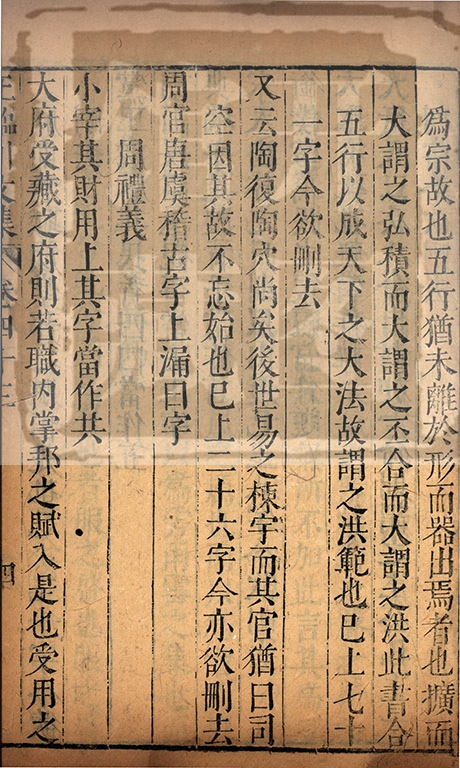 爲宗故也五行猶未離於形而器出焉者也擴而
大謂之弘積而大謂之丕合而大謂之洪此書合
五行以成天下之大法故謂之洪範也巳上七十
一字今欲刪去
又云陶復陶穴尚矣後世易之棟宇而其官猶曰司
空因其故不忘始也巳上二十六字今亦欲刪去
周官唐虞稽古字上漏曰字
周禮義
小宰其財用上其字當作共
大府受藏之府則若職内掌邦之賦入是也受用之
王臨川文集 卷四十三 四